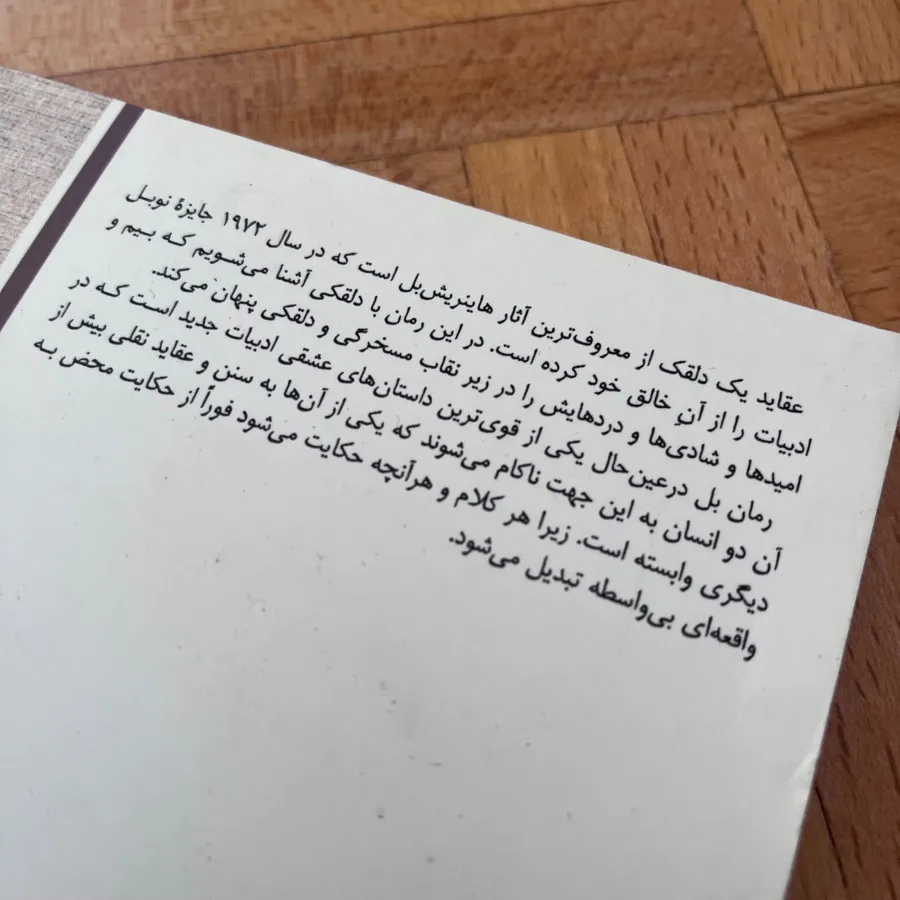 عقاید یک دلقک از معروف‌ترین آثار هاینریش‌بل است که در سال ۱۹۷۲ جایزهٔ نوبل
ادبیات را از آنِ خالق خود کرده است. در این رمان با دلقکی آشنا می‌شویم که بیم و
امیدها و شادی‌ها و دردهایش را در زیر نقاب مسخرگی و دلقکی پنهان می‌کند.
رمان بل درعین‌حال یکی از قوی‌ترین داستان‌های عشقی ادبیات جدید است که در
آن دو انسان به این جهت ناکام می‌شوند که یکی از آن‌ها به سنن و عقاید نقلی بیش از
دیگری وابسته است. زیرا هر کلام و هرآنچه حکایت می‌شود فوراً از حکایت محض به
واقعه‌ای بی‌واسطه تبدیل می‌شود.